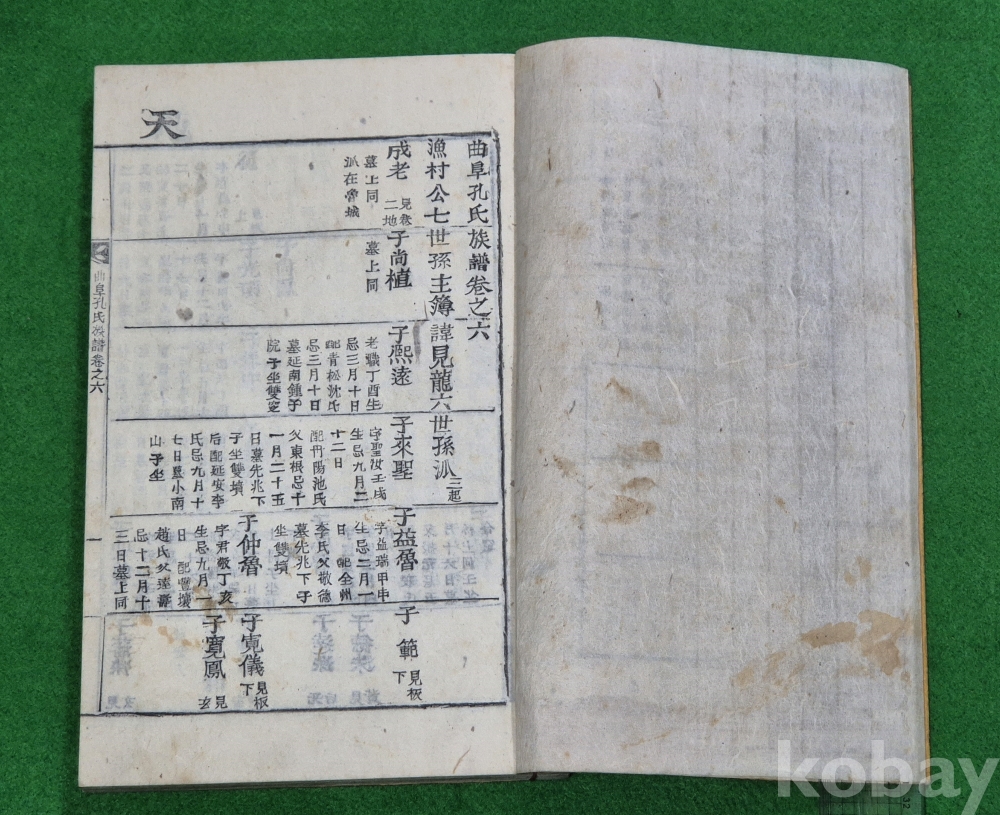 天
曲阜孔氏族譜卷之六
漁村公七世孫主簿諱見龍六世孫派 三起
成老 見卷二地
墓上同
派在魯城
子尚植
墓上同
子熙遠
老職丁酉生
忌三月十日
配青松沈氏
忌三月十日
墓延南鍾子
院子坐雙窆
子來聖
字聖汝壬戌
生忌九月二
十二日
配丹陽池氏
父東根忌十
一月二十五
日墓先兆下
子坐雙墳
后配延安李
氏忌九月十
七日墓小南
山子坐
子益魯
字益瑞甲申
生忌二月一
日 配全州
李氏父敬德
墓先兆下子
坐雙墳
子仲魯
字君敬丁亥
生忌九月一
日 配豐壤
趙氏父遠壽
忌十二月十
三日墓上同
子範 見板下
子寬儀 見板下
子寬鳳 見玄
曲阜孔氏族譜卷之六
一
kobay